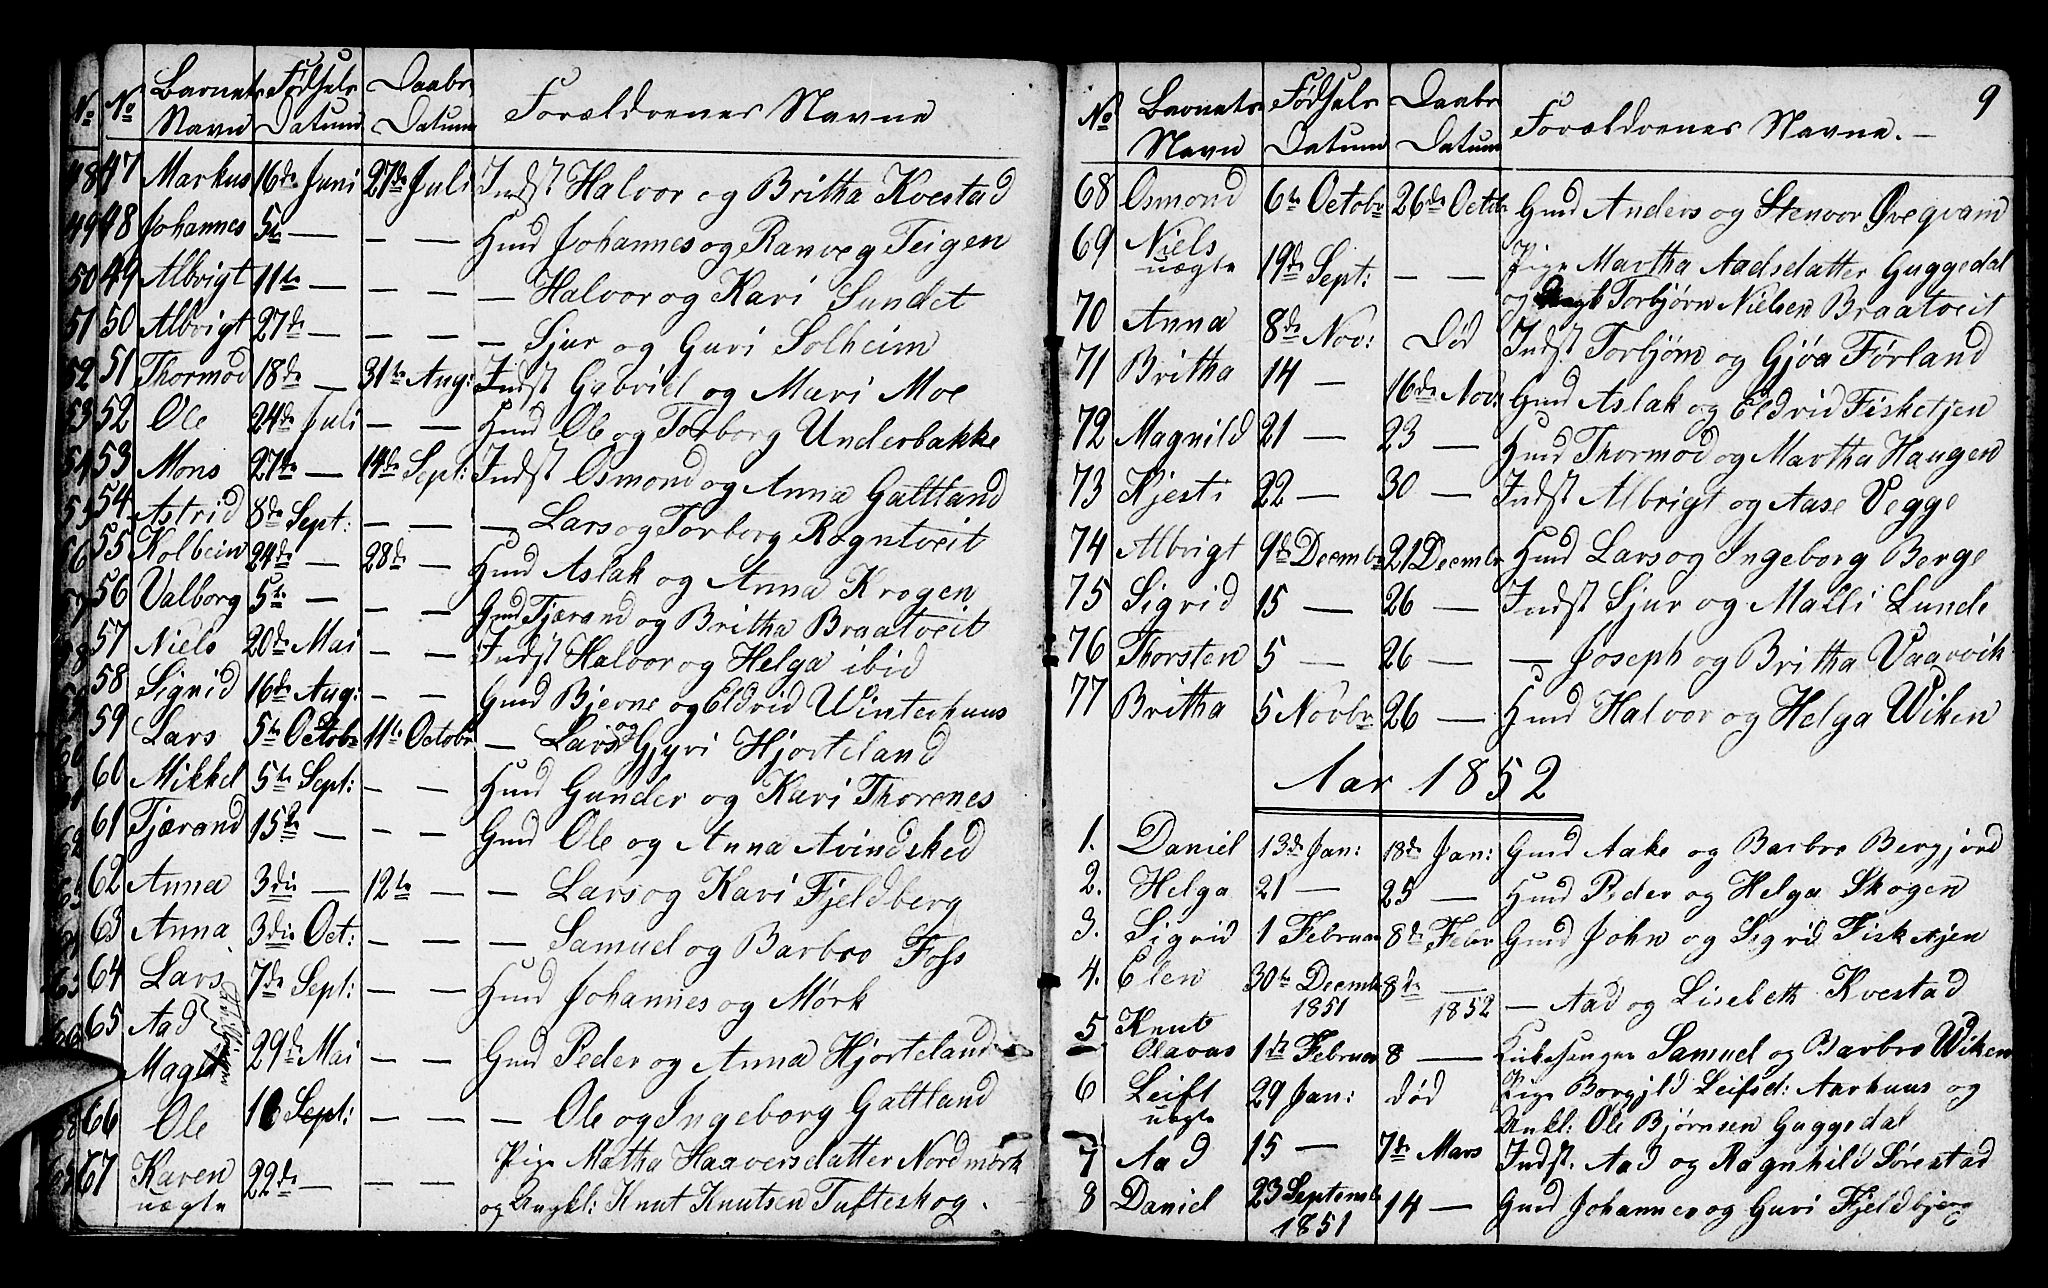 No No Barnets Fødsels Daabs Forældrenes Navne
Navn Datum Datum
48 47 Markus 16de Juni 27de Juli Indst Halvor og Britha Kvestad
49 48 Johannes 5te — — — Gmd Johannes og Ranveg Teigen
50 49 Albrigt 11te — — — — Halvor og Kari Sundet
51 50 Albrigt 27de — — — — Sjur og Guri Solheim
52 51 Thormod 18de — 31te Aug: Indst Gabriel og Mari Moe
53 52 Ole 24de Juli — — Hmd Ole og Torborg Underbakke
54 53 Mons 27de — 14de Sept: Indst Osmond og Anna Galtland
55 54 Astrid 8de Sept: — — — Lars og Torborg Rogntveit
56 55 Kolbein 24de — 28de — Hmd Aslak og Anna Krogen
57 56 Valborg 5te — — — Gmd Tjærand og Britha Braatveit
58 57 Niels 20de Mai — — Indst Halvor og Helga ibid
59 58 Sigrid 16de Aug: — — Gmd Bjerne og Eldrid Winterhuus
60 59 Lars 5te Octobr 11te Octobr — Lars og Gjyri Hjorteland
61 60 Mikkel 5te Sept: — — Hmd Gunder og Kari Thorenes
62 61 Tjærand 15de — — — Gmd Ole og Anna Avindsked
63 62 Anna 3die — 12te — — Lars og Kari Fjeldberg
64 63 Anna 3die Oct: — — — Samuel og Barbro Foss
65 64 Lars 7de Sept: — — Hmd Johannes og Mørk
66 65 Aad 29de Mai — — Gmd Peder og Anna Hjorteland
Magla
66 Ole 10 Sept: — — — Ole og Ingeborg Galtland
67 Karen 22de — — — Pige Matha Haaversdatter Nordmørk
uægte og Ungkl: Knut Knutsen Tufteskog.
9
No Barnets Fødsels Daabs Forældrenes Navne. —
Navn Datum Datum
68 Osmond 6te Octobr 26de Octbr Gmd Anders og Stenvor Øveqvam
69 Niels 19de Sept: — — Pige Martha Aadsdatter Guggedal
uægte og Torbjørn Nielsen Braatveit
70 Anna 8de Nov: Død Indst Torbjørn og Gjøa Førland
71 Britha 14 — 16de Nov: Gmd Aslak og Eldrid Fisketjen
72 Magnild 21 — 23 — Hmd Thormod og Martha Haugen
73 Kjesti 22 — 30 — Indst Albrigt og Aase Vegge
74 Albrigt 9de Decmbr 21 Decmbr Hmd Lars og Ingeborg Berge
75 Sigrid 15 — 26 — Indst Sjur og Malli Lunde
76 Thorsten 5 — 26 — — Joseph og Britha Vaarvik
77 Britha 5 Novbr 26 — Hmd Halvor og Helga Wiken
Aar 1852
1. Daniel 13de Jan: 18de Jan: Gmd Aake og Barbro Bergjord
2. Helga 21 — 25 — Hmd Peder og Helga Skogen
3. Sigrid 1 Februar 8de Febr Gmd John og Sigrid Fisketjen
4. Elen 30te Decmbr 8de — — Aad og Lisebeth Kvestad
1851 1852
5 Knut
Olavas 1te Februar 8 — Kirkesenger Samuel og Barbro Wiken
6 Leift 29 Jan: død Pige Borgjld Leifsd: Aarhuus og
uægte Unkl: Ole Bjørnsen Guggedal
7 Aad 15 — 7de Mars Indst. Aad og Ragnhild Sørestad
8 Daniel 23 Septembr 14 — Gmd Johannes og Guri Fjeldbjerg
1851